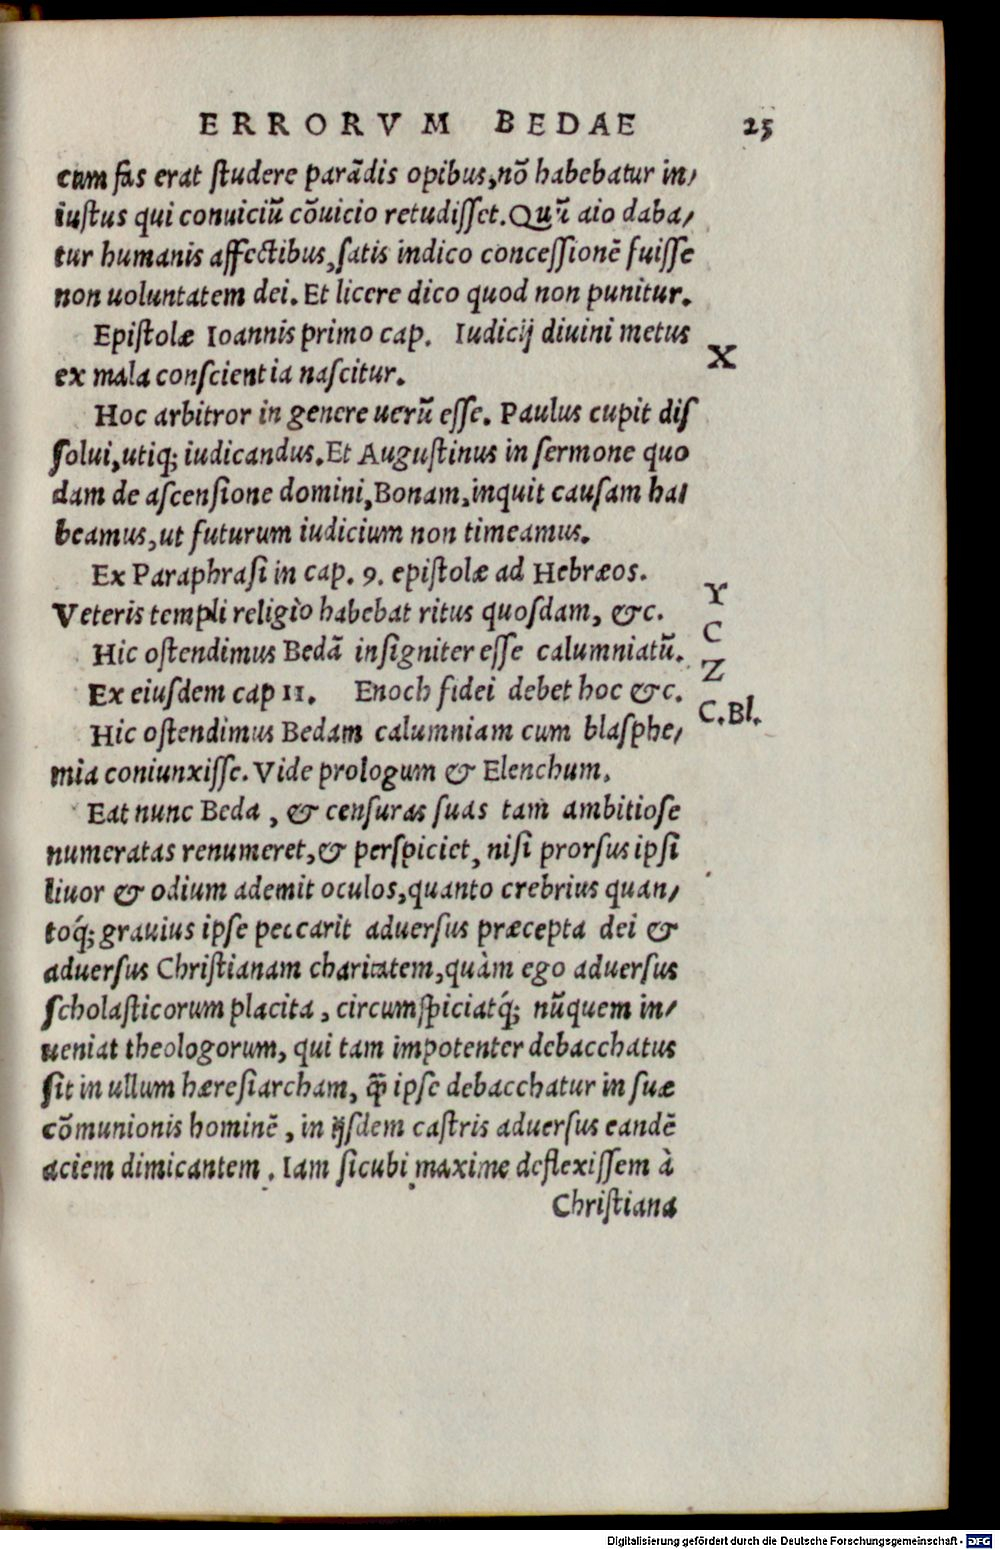 ERRORVM BEDAE 25
cum fas erat ſtudere parãdis opibus, nõ habebatur in/
iuſtus qui conuiciũ cõuicio retudiſſet. Quũ aio daba/
tur humanis affectibus, ſatis indico conceſſionẽ fuiſſe
non uoluntatem dei. Et licere dico quod non punitur.
Epiſtolæ Ioannis primo cap. Iudicij diuini metus
X
ex mala conſcientia naſcitur.
Hoc arbitror in genere uerũ eſſe. Paulus cupit diſ
ſolui, utiq; iudicandus. Et Auguſtinus in ſermone quo
dam de aſcenſione domini, Bonam, inquit cauſam ha/
beamus, ut futurum iudicium non timeamus.
Ex Paraphraſi in cap. 9. epiſtolæ ad Hebræos.
Y
Veteris templi religio habebat ritus quoſdam, &c.
C
Hic oſtendimus Bedã inſigniter eſſe calumniatũ.
Z
Ex eiuſdem cap 11. Enoch fidei debet hoc &c.
C. Bl.
Hic oſtendimus Bedam calumniam cum blaſphe/
mia coniunxiſſe. Vide prologum & Elenchum.
Eat nunc Beda, & cenſuras ſuas tam ambitioſe
numeratas renumeret, & perſpiciet, niſi prorſus ipſi
liuor & odium ademit oculos, quanto crebrius quan/
toq́; grauius ipſe peccarit aduerſus præcepta dei &
aduerſus Chriſtianam charitatem, quàm ego aduerſus
ſcholaſticorum placita, circumſpiciatq́; nũquem in/
ueniat theologorum, qui tam impotenter debacchatus
ſit in ullum hæreſiarcham, q̃ ipſe debacchatur in ſuæ
cõmunionis hominẽ, in ijſdem caſtris aduerſus eandẽ
aciem dimicantem. Iam ſicubi maxime deflexiſſem à
Chriſtiana
Digitalisierung gefördert durch die Deutsche Forschungsgemeinschaft - DFG